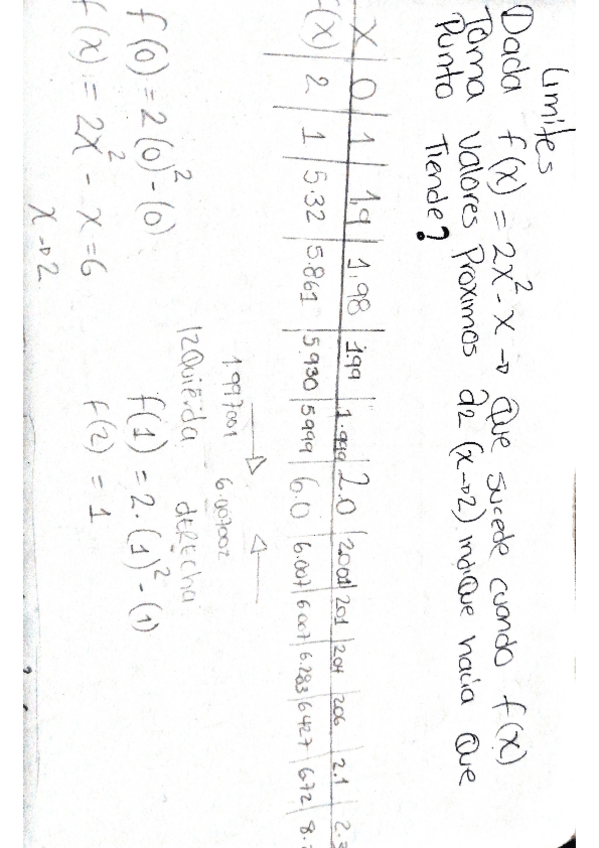 Limites
Dada f(x) = 2x² - x → Que sucede cuando f(x)
Toma valores Proximos a 2 (x→2) indique hacia que
Punto Tiende?
x | 0 | 1 | 1,9 | 1.98 | 1.99 | 1.999 | 2.0 | 2.001 | 201 | 204 | 206 | 2.1
f(x) | 2 | 1 | 5.32 | 5.861 | 5.930 | 5999 | 6.0 | 6.007 | 6007 | 6.283 | 6427 | 672
1.997001 6.007002
IZQuiErda dERECha
f(0) = 2(0)² - (0) f(1) = 2.(1)² - (1)
f(x) = 2x² - x = 6 f(2) = 1
x→2